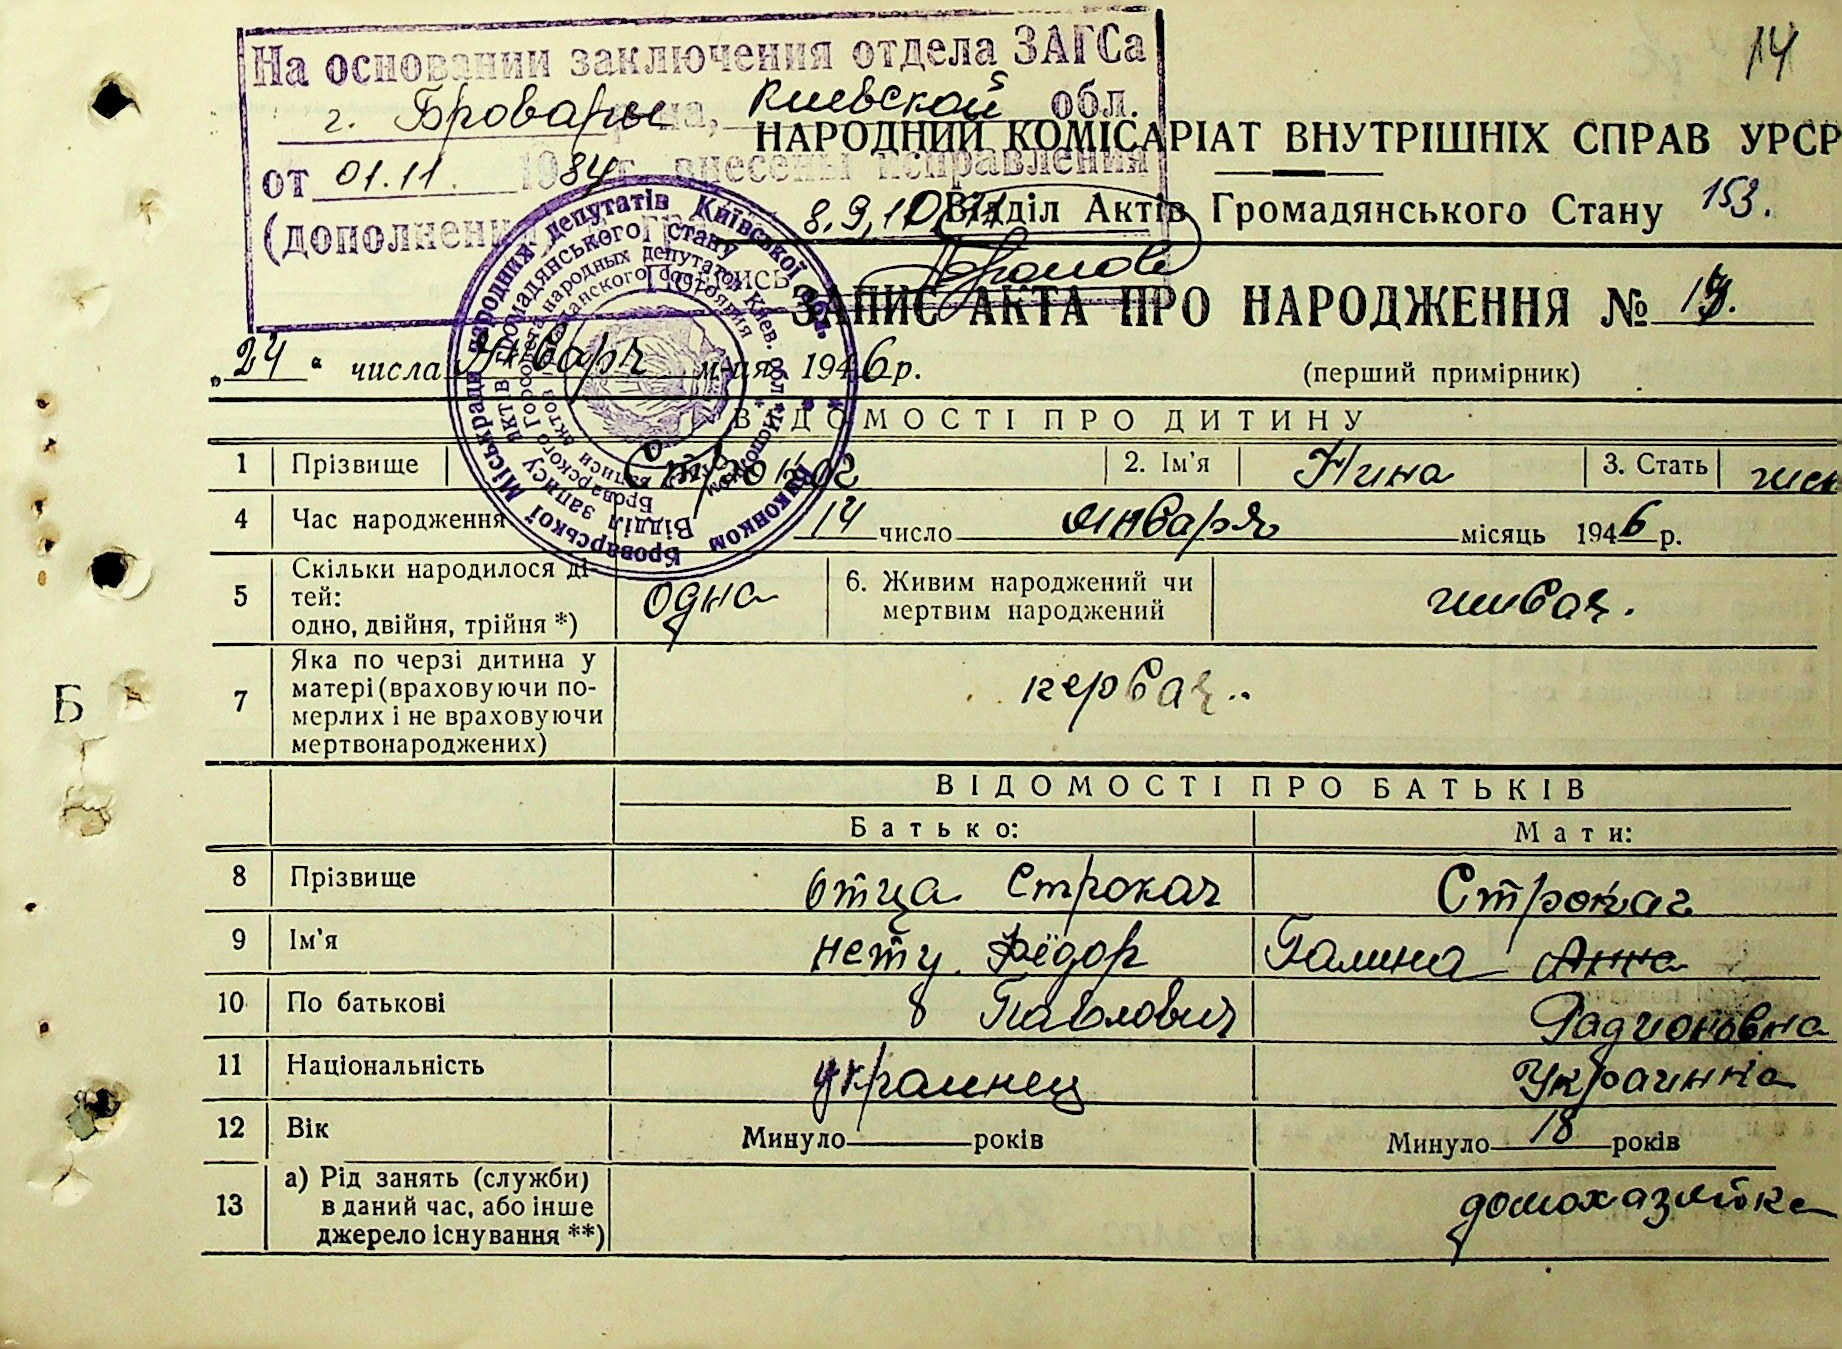 14
На основании заключения отдела ЗАГСа
г. Бровары р-на, Киевской обл.
от 01.11. 1984 г. внесены исправления
(дополнен 8,9,10,11
Подпись
НАРОДНИЙ КОМІСАРІАТ ВНУТРІШНІХ СПРАВ УРСР
Відділ Актів Громадянського Стану 153.
ЗАПИС АКТА ПРО НАРОДЖЕННЯ №
„24“ числа м-ця 1946 р.
(перший примірник)
ВІДОМОСТІ ПРО ДИТИНУ
1 Прізвище Строкос 2. Ім'я Нина 3. Стать жен
4 Час народження 14 число января місяць 1946 р.
5 Скільки народилося ді-
тей:
одно, двійня, трійня *) одна 6. Живим народжений чи
мертвим народжений живая.
7 Яка по черзі дитина у
матері (враховуючи по-
мерлих і не враховуючи
мертвонароджених) первая..
Б
ВІДОМОСТІ ПРО БАТЬКІВ
Батько: Мати:
8 Прізвище отца Строкач Строкач
9 Ім'я нету Фёдор Галина Анна
10 По батькові Павлович Радионовна
11 Національність украинец Украинка
12 Вік Минуло років Минуло 18 років
13 а) Рід занять (служби)
в даний час, або інше
джерело існування **) домохазяйка
Броварської міськради народних депутатів Київської обл. Виконком
Відділ запису актів громадянського стану